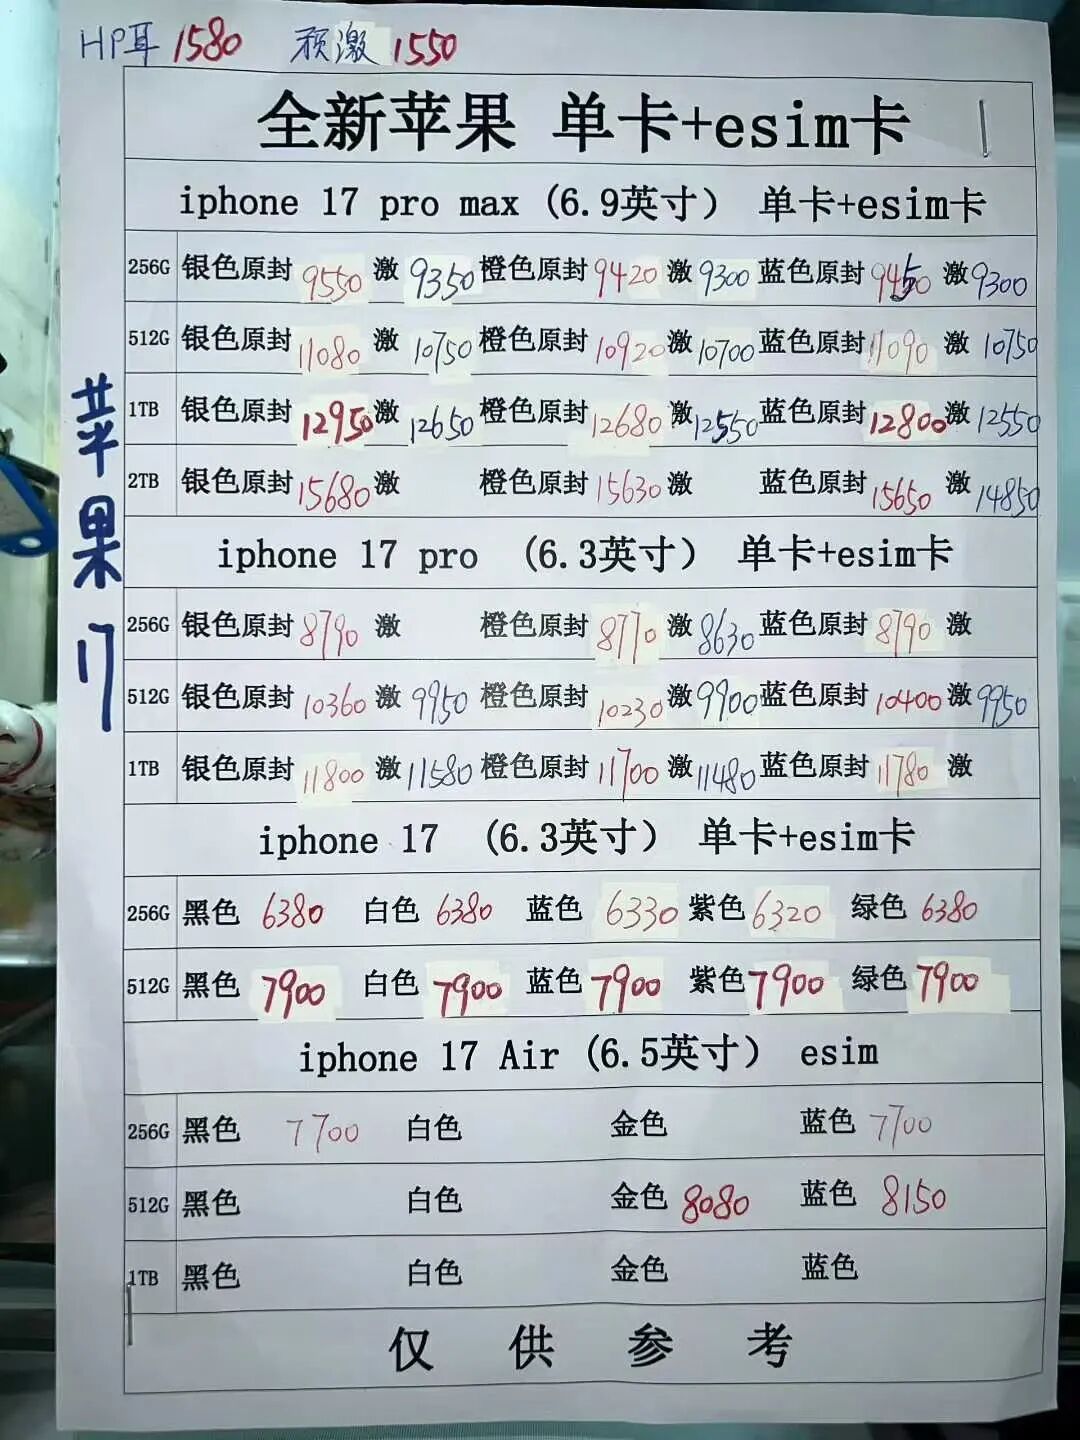 HP耳 1580 预激 1550
全新苹果 单卡+esim卡
iphone 17 pro max (6.9英寸） 单卡+esim卡
256G 银色原封 9550 激 9350 橙色原封 9420 激 9300 蓝色原封 9450 激 9300
512G 银色原封 11080 激 10750 橙色原封 10920 激 10700 蓝色原封 11090 激 10750
1TB 银色原封 12950 激 12650 橙色原封 12680 激 12550 蓝色原封 12800 激 12550
2TB 银色原封 15680 激 橙色原封 15630 激 蓝色原封 15650 激 14850
苹果17
iphone 17 pro （6.3英寸） 单卡+esim卡
256G 银色原封 8790 激 橙色原封 8770 激 8630 蓝色原封 8790 激
512G 银色原封 10360 激 9950 橙色原封 10230 激 9900 蓝色原封 10400 激 9950
1TB 银色原封 11800 激 11580 橙色原封 11700 激 11480 蓝色原封 11780 激
iphone 17 （6.3英寸） 单卡+esim卡
256G 黑色 6380 白色 6380 蓝色 6330 紫色 6320 绿色 6380
512G 黑色 7900 白色 7900 蓝色 7900 紫色 7900 绿色 7900
iphone 17 Air (6.5英寸） esim
256G 黑色 7700 白色 金色 蓝色 7700
512G 黑色 白色 金色 8080 蓝色 8150
1TB 黑色 白色 金色 蓝色
仅供参考